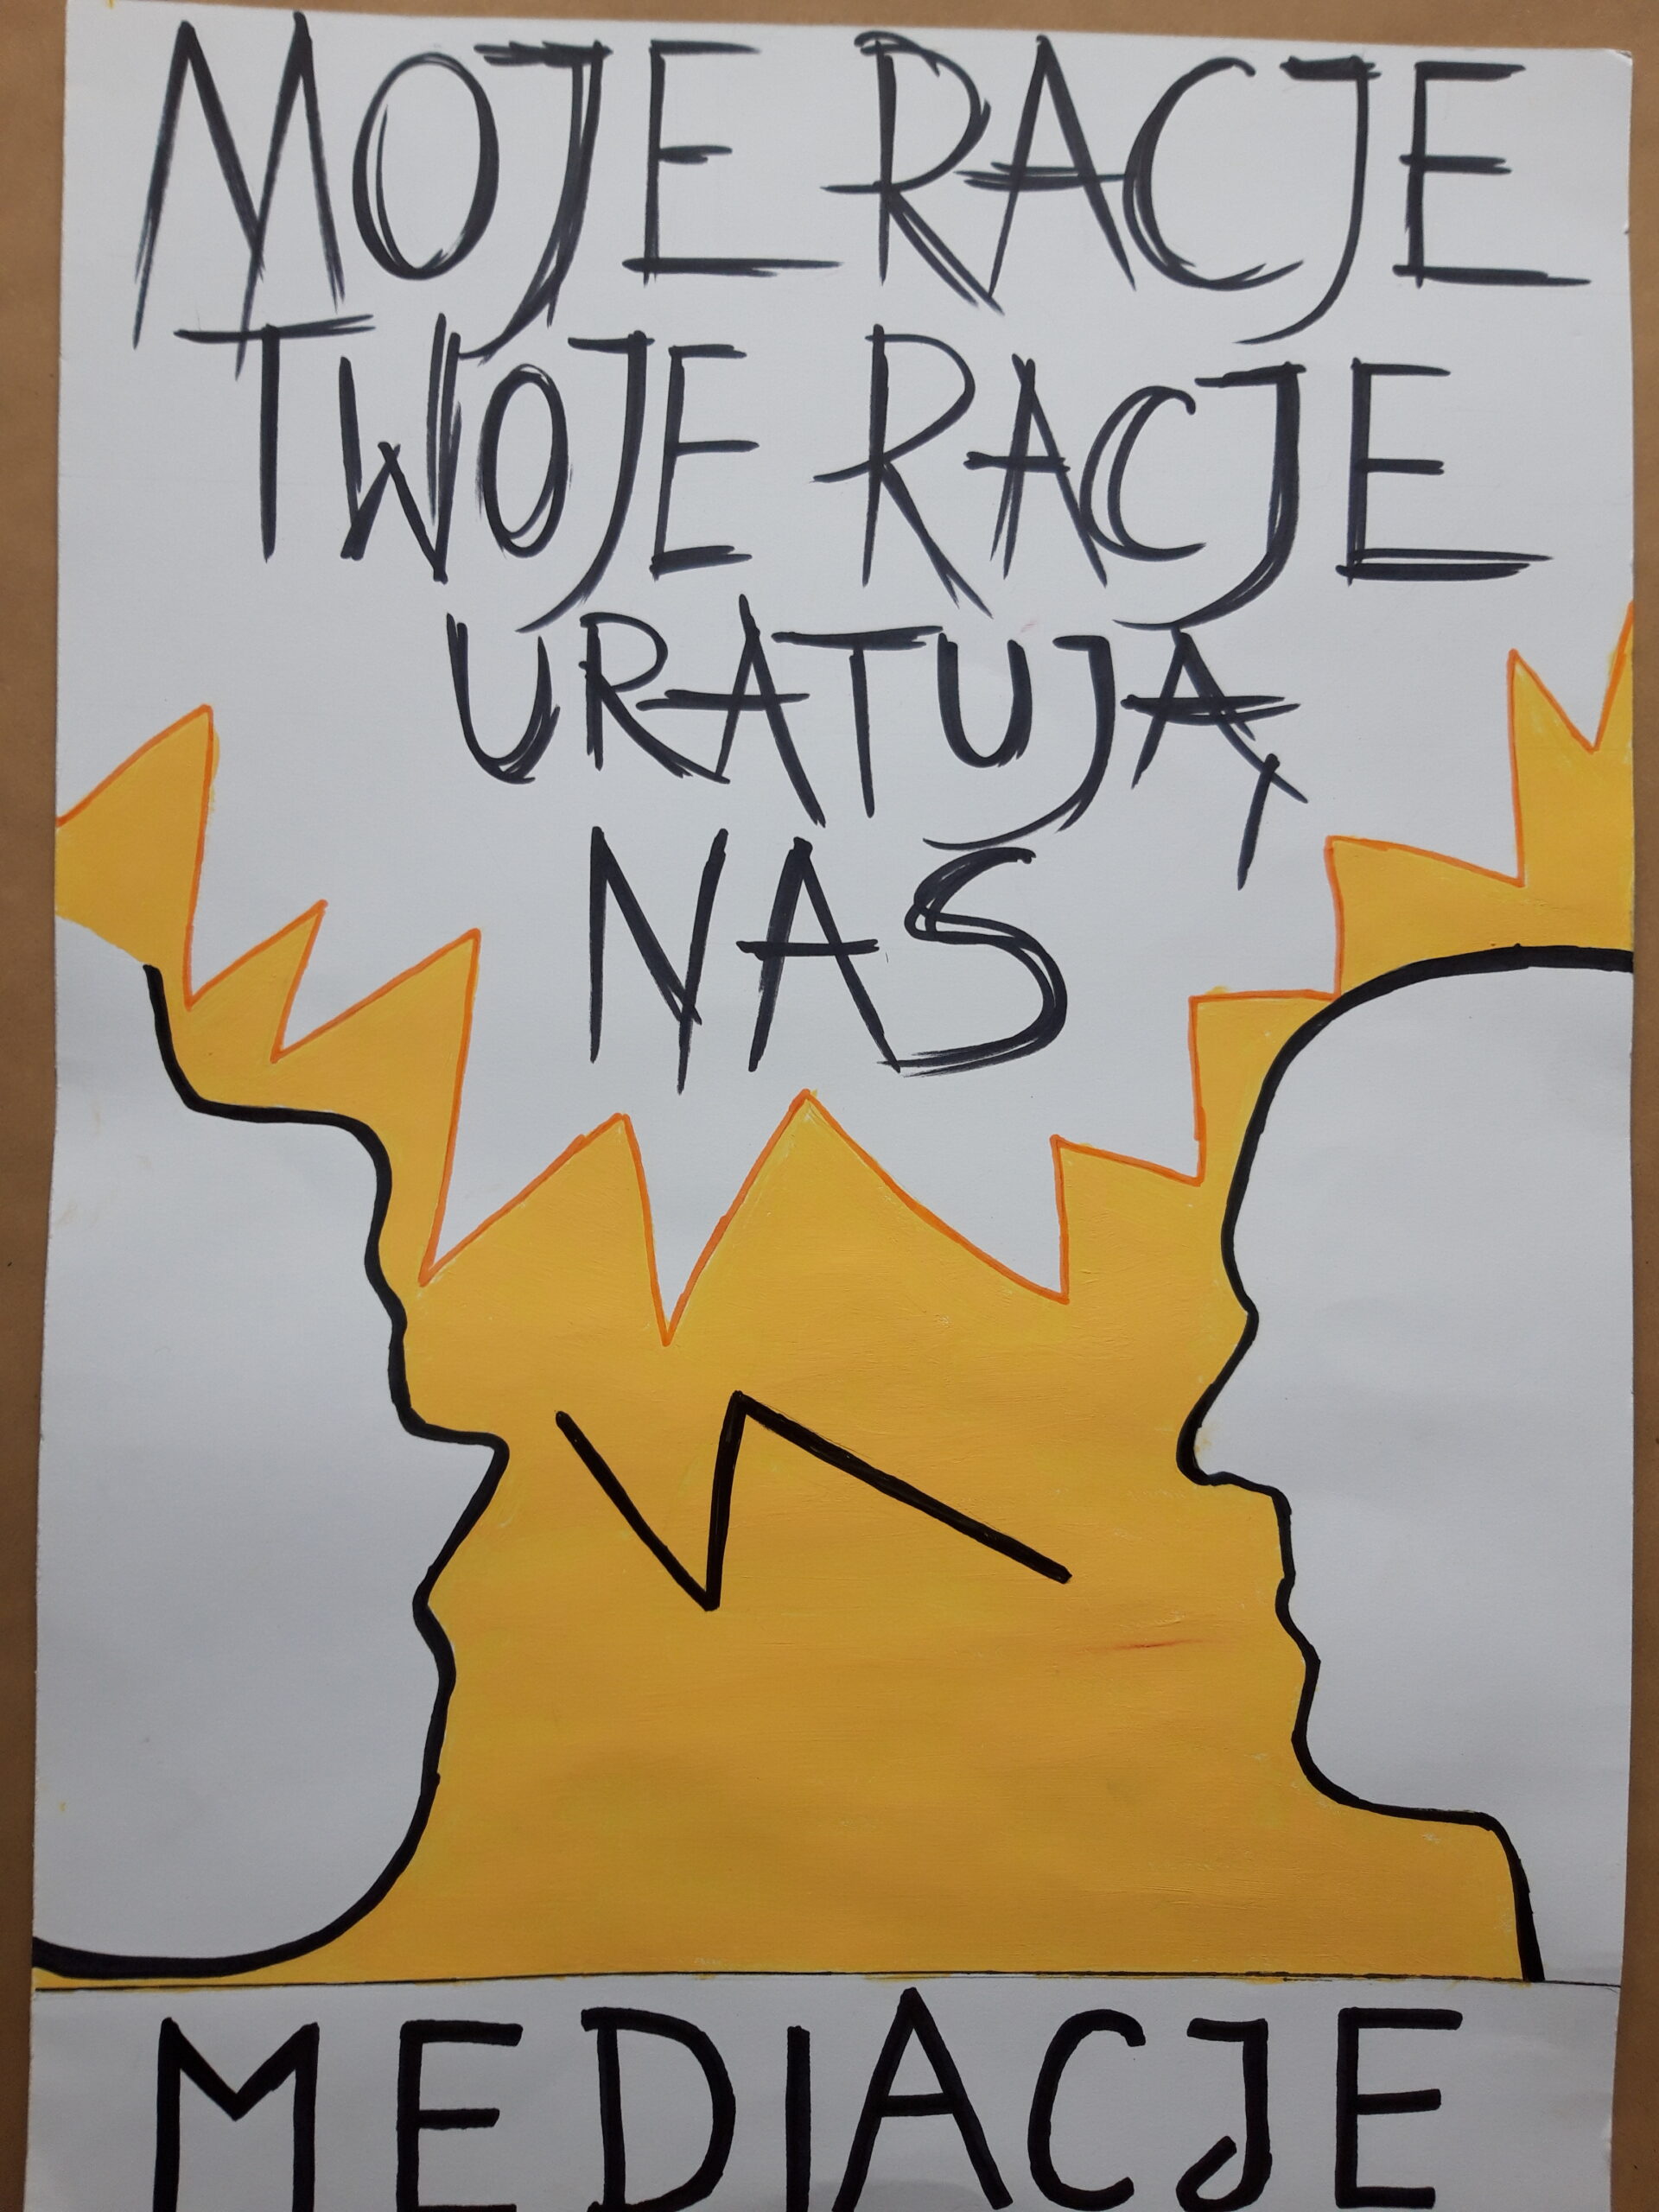 MOJE RACJE
TWOJE RACJE
URATUJĄ
NAS
MEDIACJE